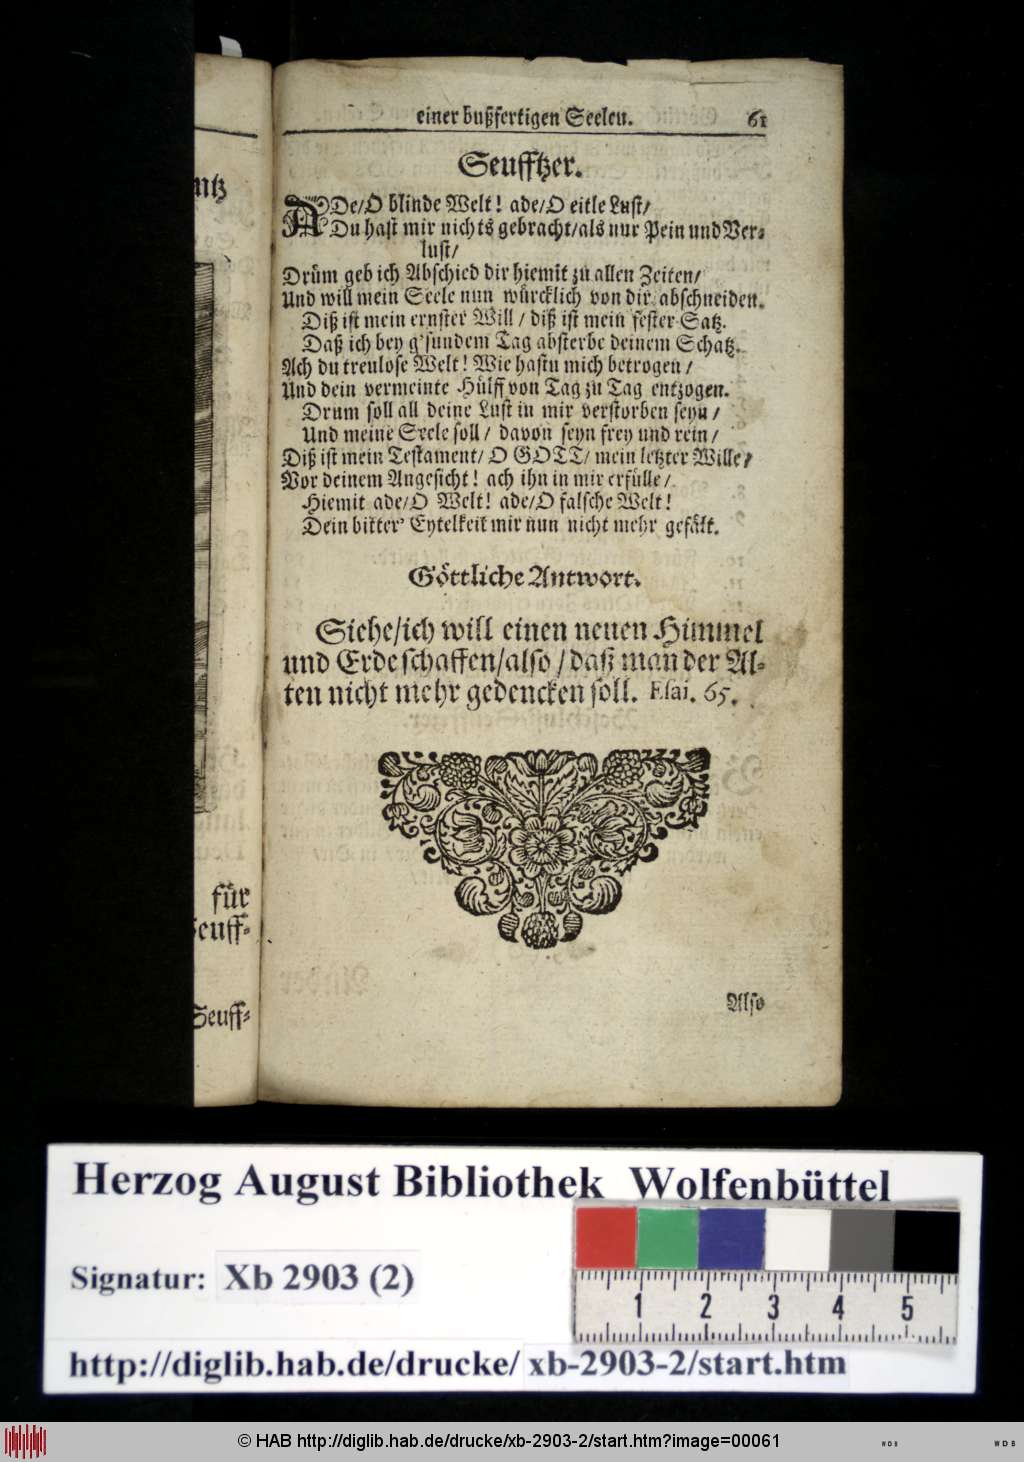 ntz
für
Seuff-
Seuff-
einer bußfertigen Seelen. 61
Seufftzer.
ADe/O blinde Welt! ade/O eitle Lust/
Du hast mir nichts gebracht/als nur Pein und Ver-
lust/
Drüm geb ich Abschied dir hiemit zu allen Zeiten/
Und will mein Seele nun würcklich von dir abschneiden.
Diß ist mein ernster Will / diß ist mein fester Satz.
Daß ich bey g'sundem Tag absterbe deinem Schatz.
Ach du treulose Welt! Wie hastu mich betrogen /
Und dein vermeinte Hülff von Tag zu Tag entzogen.
Drum soll all deine Lust in mir verstorben seyn /
Und meine Seele soll / davon seyn frey und rein /
Diß ist mein Testament/ O GOTT/ mein letzter Wille/
Vor deinem Angesicht! ach ihn in mir erfülle /
Hiemit ade/O Welt! ade/O falsche Welt!
Dein bitter' Eytelkeit mir nun nicht mehr gefält.
Göttliche Antwort.
Siehe/ich will einen neuen Himmel
und Erde schaffen/also / daß man der Al-
ten nicht mehr gedencken soll. Esai. 65.
Also
Herzog August Bibliothek Wolfenbüttel
Signatur: Xb 2903 (2)
1 2 3 4 5
http://diglib.hab.de/drucke/ xb-2903-2/start.htm
© HAB http://diglib.hab.de/drucke/xb-2903-2/start.htm?image=00061
WDB WDB